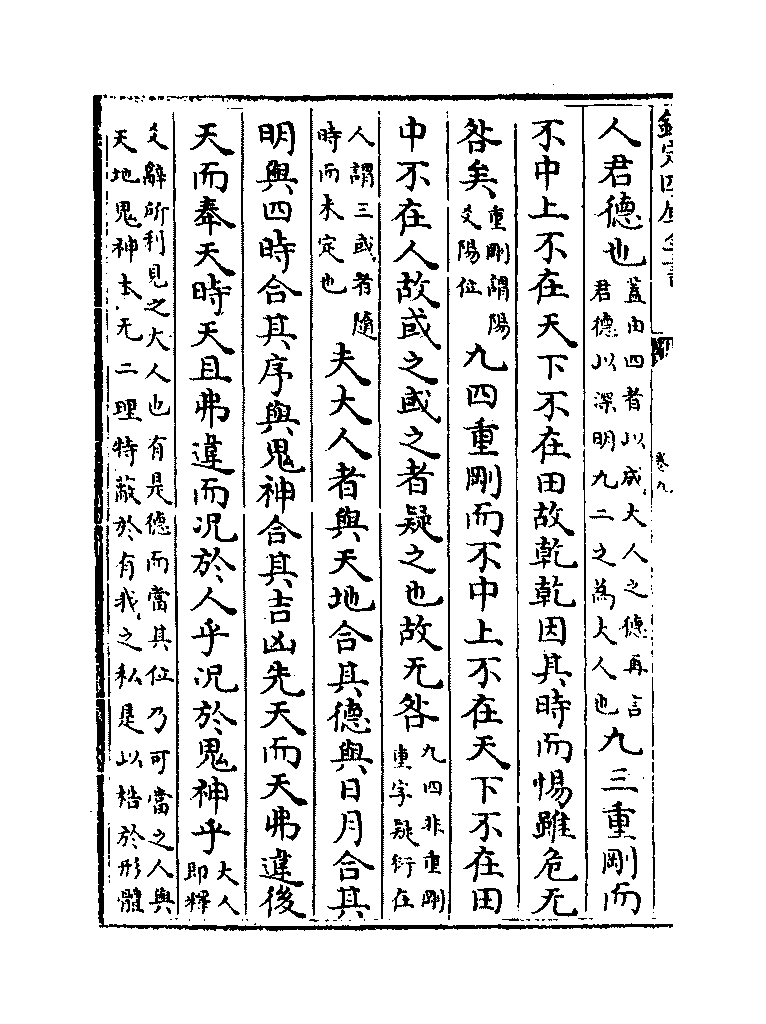 欽定四庫全書
卷九
人君德也蓋由四者以成大人之德再言君德以深明九二之為大人也九三重剛而
不中上不在天下不在田故乾乾因其時而惕雖危无
咎矣重剛謂陽爻陽位九四重剛而不中上不在天下不在田
中不在人故或之或之者疑之也故无咎九四非重剛重字疑衍在
人謂三或者隨時而未定也夫大人者與天地合其德與日月合其
明與四時合其序與鬼神合其吉凶先天而天弗違後
天而奉天時天且弗違而況於人乎況於鬼神乎大人即釋
爻辭所利見之大人也有是德而當其位乃可當之人與天地鬼神本无二理特蔽於有我之私是以梏於形體